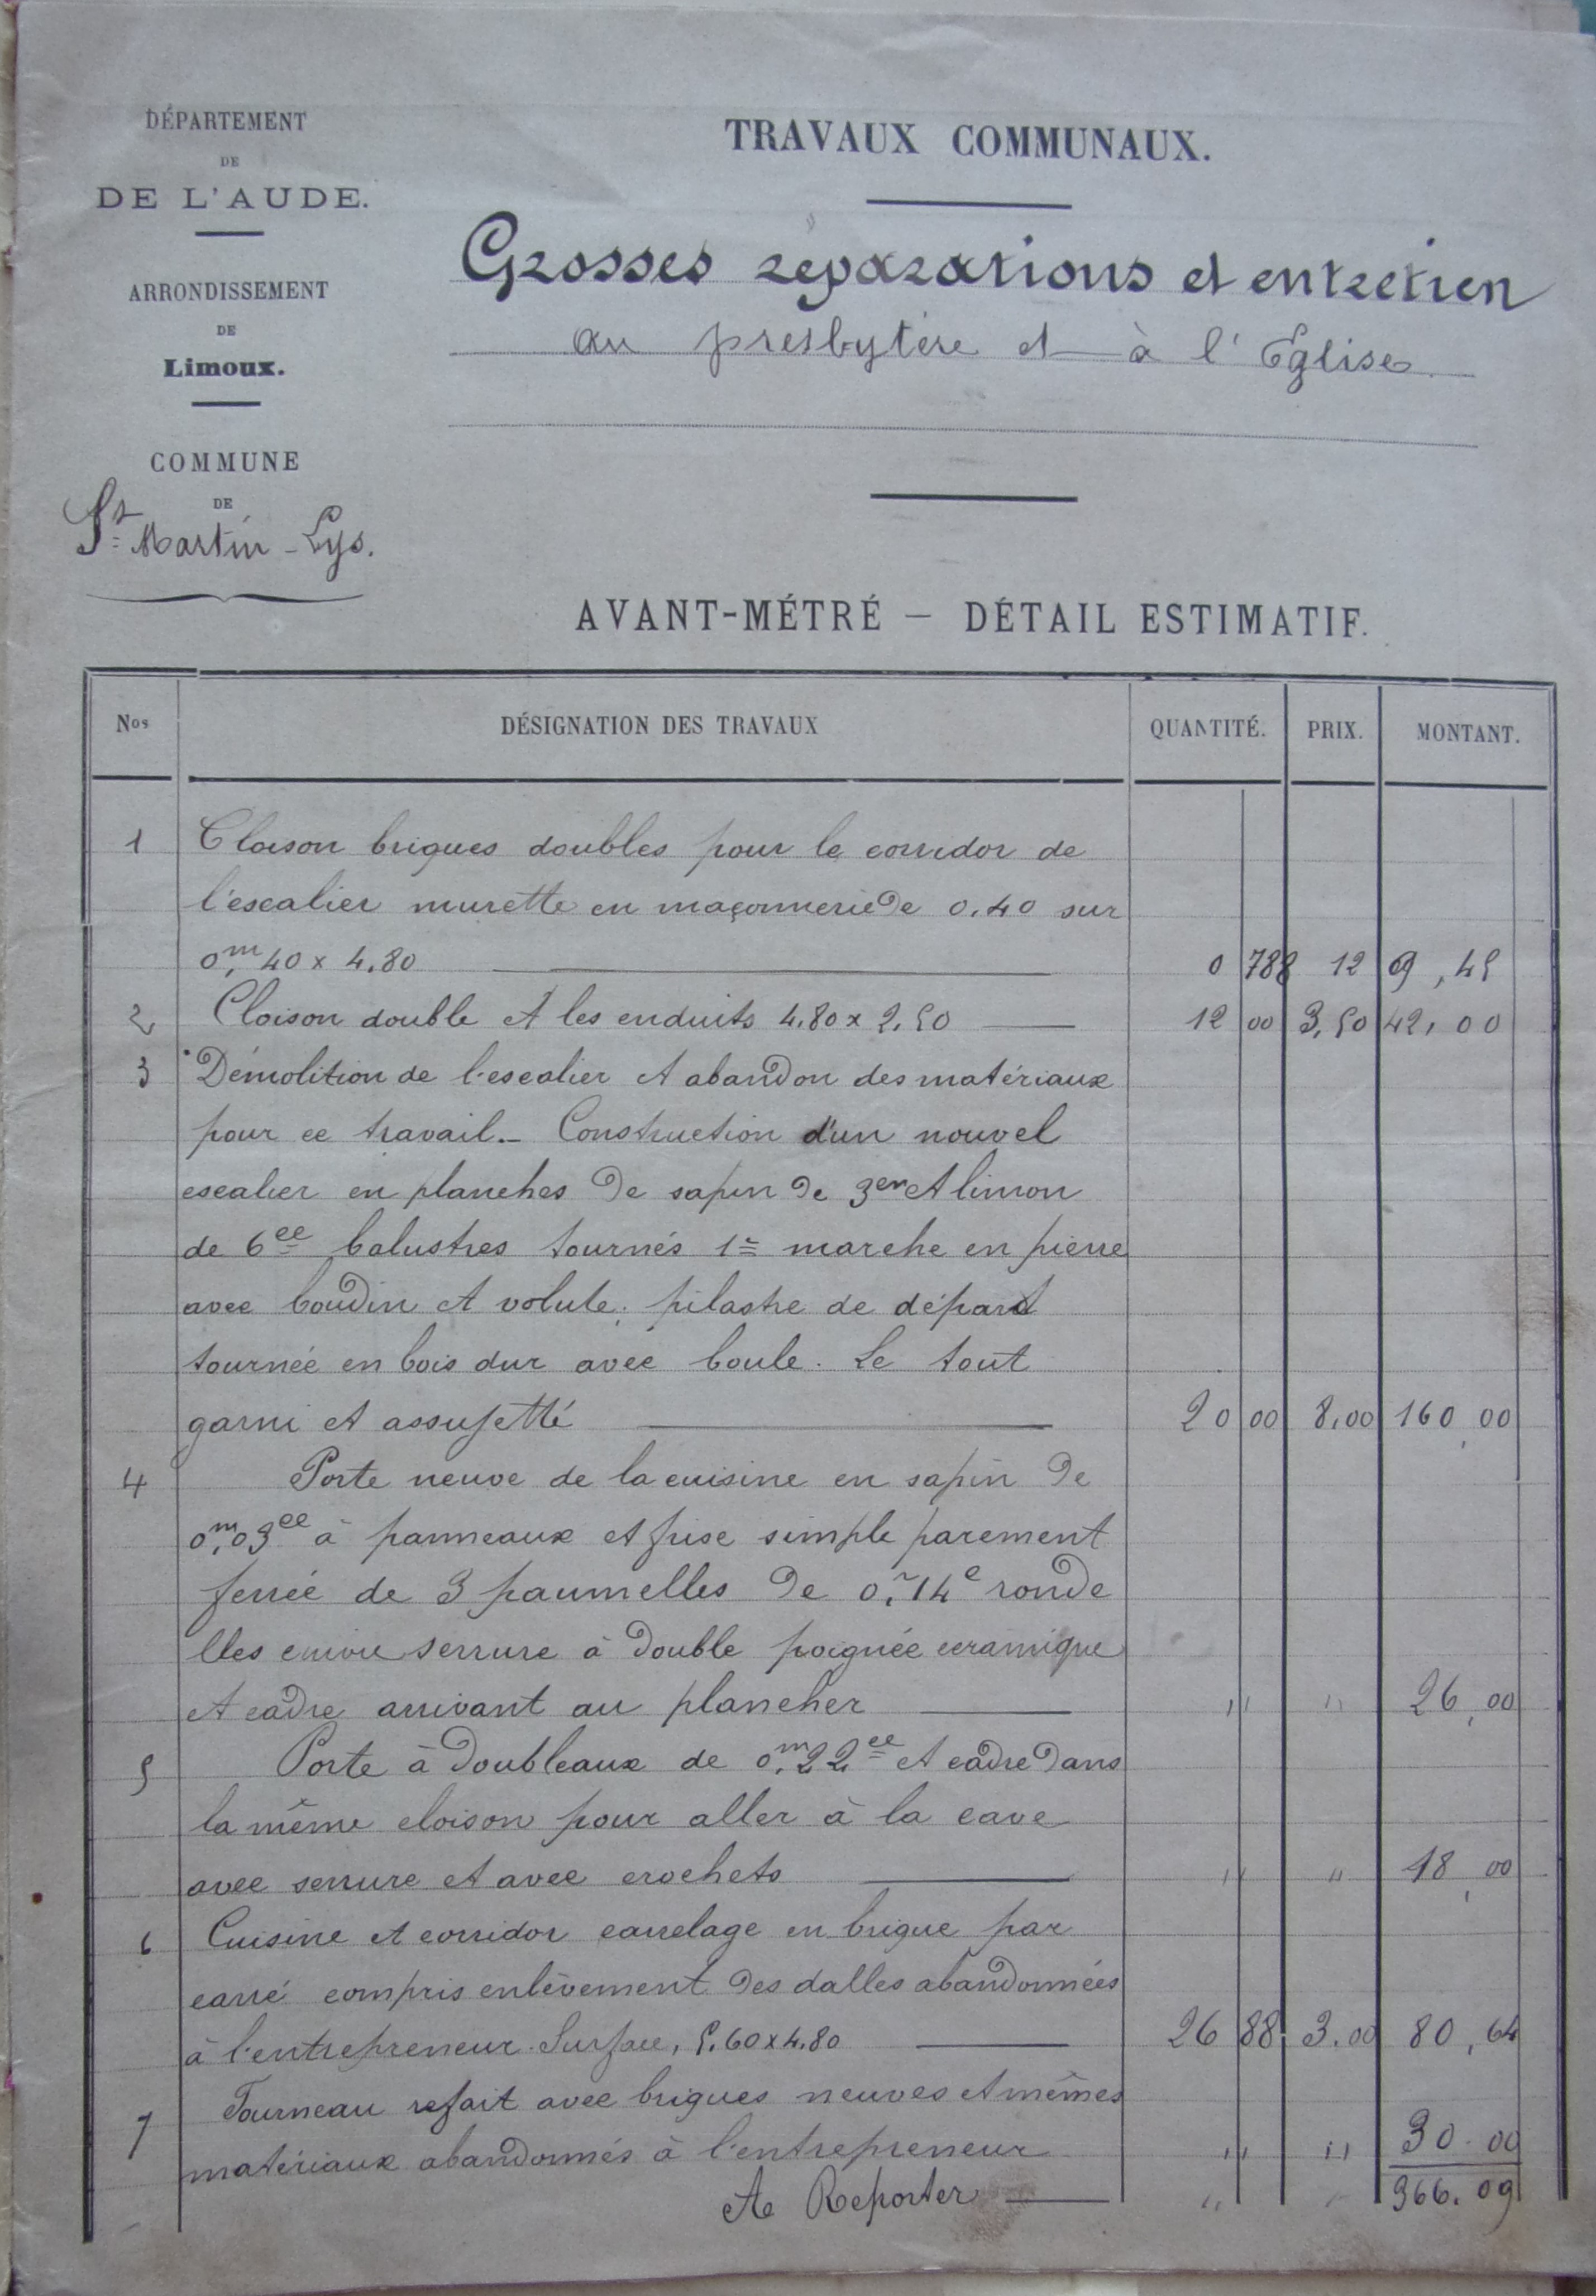 DÉPARTEMENT
DE
DE L'AUDE.
ARRONDISSEMENT
DE
Limoux.
COMMUNE
DE
St Martin-Lys.
TRAVAUX COMMUNAUX.
Grosses réparations et entretien
au presbytère et à l'Eglise.
AVANT-MÉTRÉ — DÉTAIL ESTIMATIF.
Nos DÉSIGNATION DES TRAVAUX QUANTITÉ. PRIX. MONTANT.
1 Cloison briques doubles pour le corridor de
l'escalier murette en maçonnerie de 0.40 sur
0,m40 x 4.80 0 788 12 9,45
2 Cloison double et les enduits 4.80 x 2.50 12 00 3,50 42,00
3 Démolition de l'escalier et abandon des matériaux
pour ce travail.- Construction d'un nouvel
escalier en planches de sapin de 3em et limon
de 6ec balustres tournés 1re marche en pierre
avec boudin et volute, pilastre de départ
tournée en bois dur avec boule. Le tout
garni et assujetté 20 00 8,00 160,00
4 Porte neuve de la cuisine en sapin de
0,m03ec à panneaux et frise simple parement
ferrée de 3 paumelles de 0,m14c ronde
lles cuivre serrure à double poignée ceramique
et cadre arrivant au plancher " " 26,00
5 Porte à doubleaux de 0,m22ec et cadre dans
la même cloison pour aller à la cave
avec serrure et avec crochets " " 18,00
6 Cuisine et corridor carrelage en brique par
carré compris enlèvement des dalles abandonnées
à l'entrepreneur. Surface, 5.60 x 4.80 26 88 3.00 80,64
7 Fourneau refait avec briques neuves et mêmes
matériaux abandonnés à l'entrepreneur " " 30.00
A Reporter " " 366.09